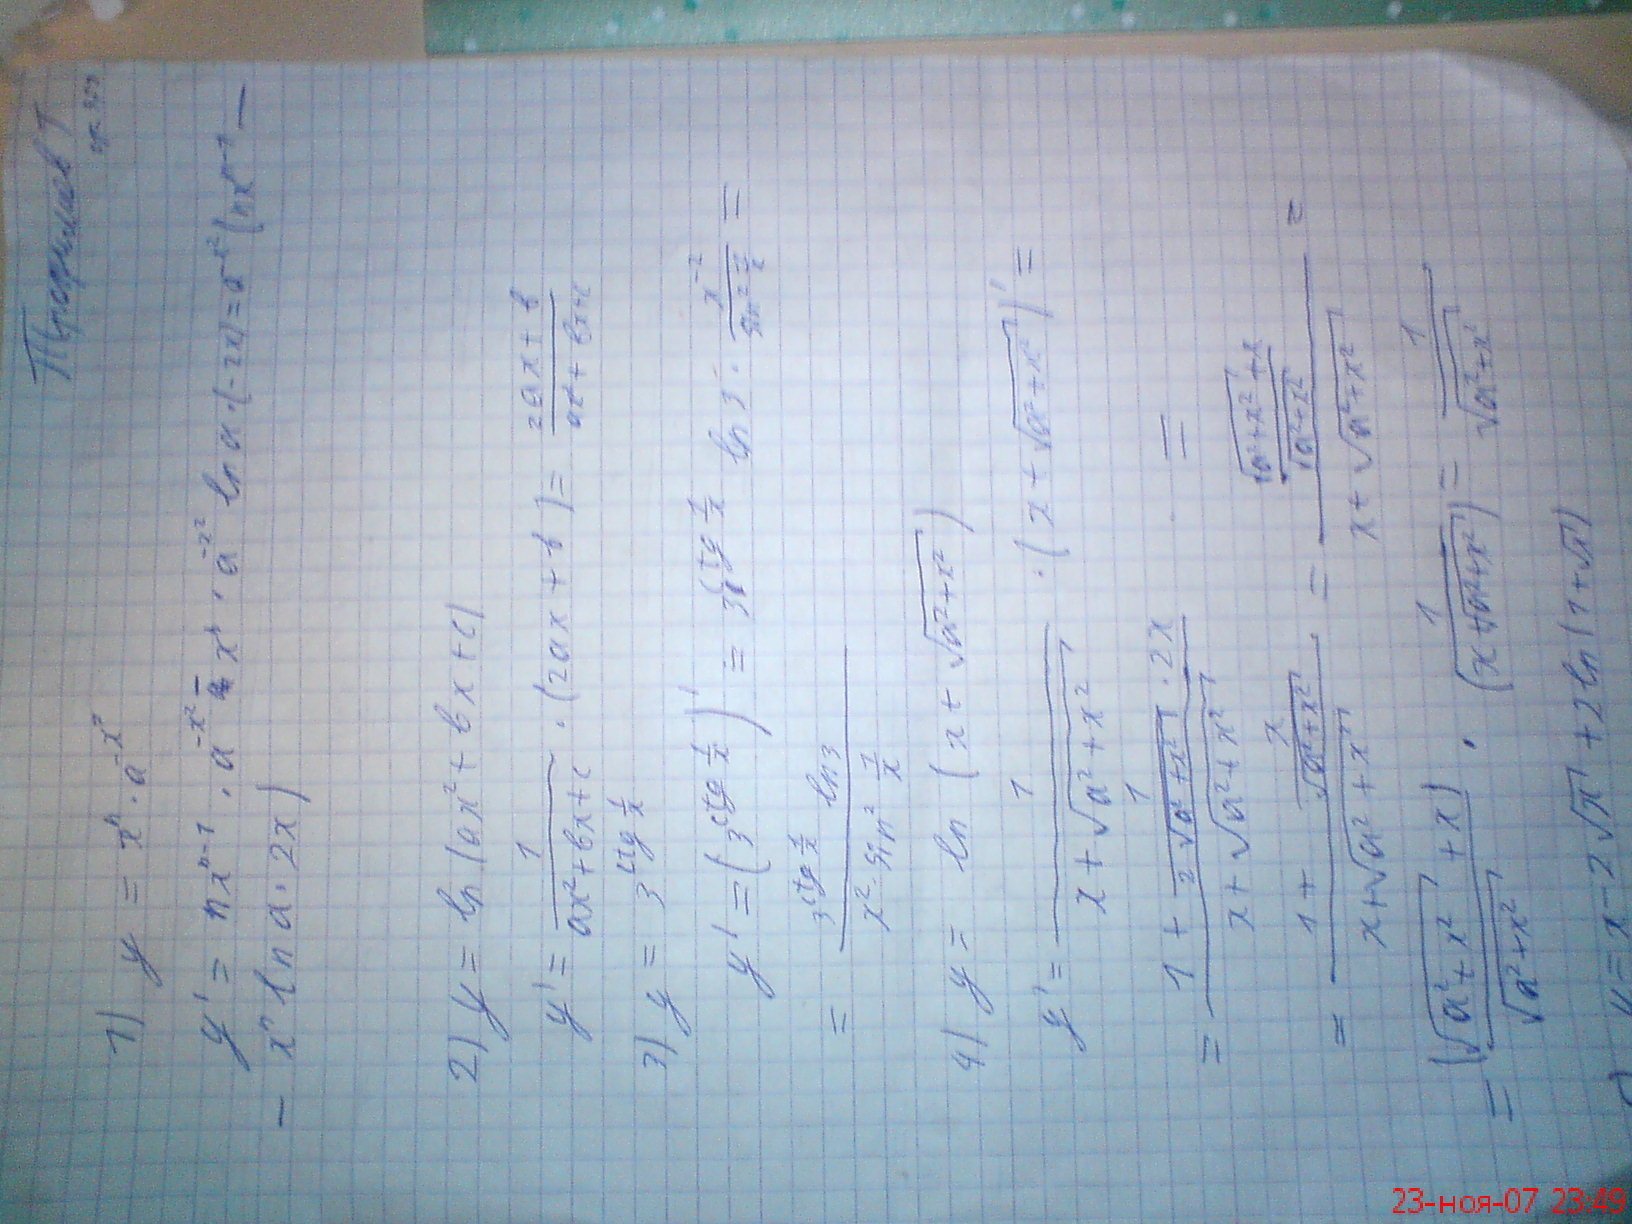 1) y = xⁿ · a^(-x²)
y' = nxⁿ⁻¹ · a^(-x²) - xⁿ · a^(-x²) ln a · (-2x) = a^(-x²) (nxⁿ⁻¹ -
- xⁿ ln a · 2x)
2) y = ln (ax² + bx + c)
y' = 1/(ax² + bx + c) · (2ax + b) = (2ax + b)/(ax² + bx + c)
3) y = 3^(ctg 1/x)
y' = (3^(ctg 1/x))' = 3^(ctg 1/x) ln 3 · x⁻²/(sin² 1/x) =
= (3^(ctg 1/x) ln 3)/(x² · sin² 1/x)
4) y = ln (x + √(a² + x²))
y' = 1/(x + √(a² + x²)) · (x + √(a² + x²))' =
= (1 + 1/(2√(a² + x²)) · 2x)/(x + √(a² + x²)) =
= (1 + x/√(a² + x²))/(x + √(a² + x²)) = ((√(a² + x²) + x)/√(a² + x²))/(x + √(a² + x²)) =
= (√(a² + x²) + x)/√(a² + x²) · 1/(x + √(a² + x²)) = 1/√(a² + x²)
y = x - 2√x + 2 ln (1 + √x)
23-ноя-07 23:49